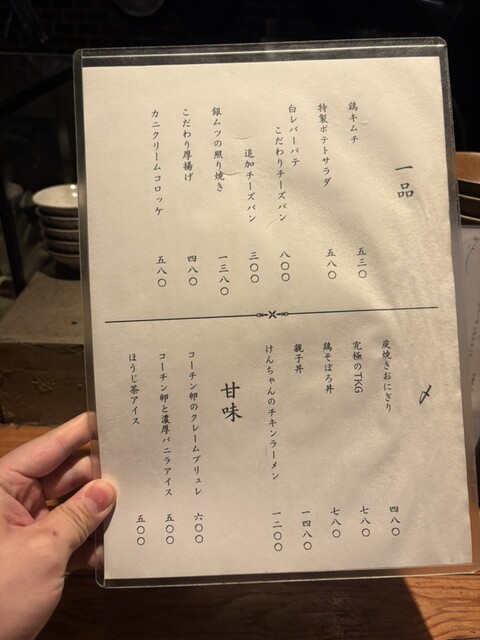 一品
鶏キムチ 五三〇
特製ポテトサラダ 五八〇
白レバーパテ
こだわりチーズパン 八〇〇
追加チーズパン 三〇〇
銀ムツの照り焼き 一三八〇
こだわり厚揚げ 四八〇
カニクリームコロッケ 五八〇
〆
炭焼きおにぎり 四八〇
究極のTKG 七八〇
鶏そぼろ丼 七八〇
親子丼 一四八〇
けんちゃんのチキンラーメン 一二〇〇
甘味
コーチン卵のクレームブリュレ 六〇〇
コーチン卵と濃厚バニラアイス 五〇〇
ほうじ茶アイス 五〇〇